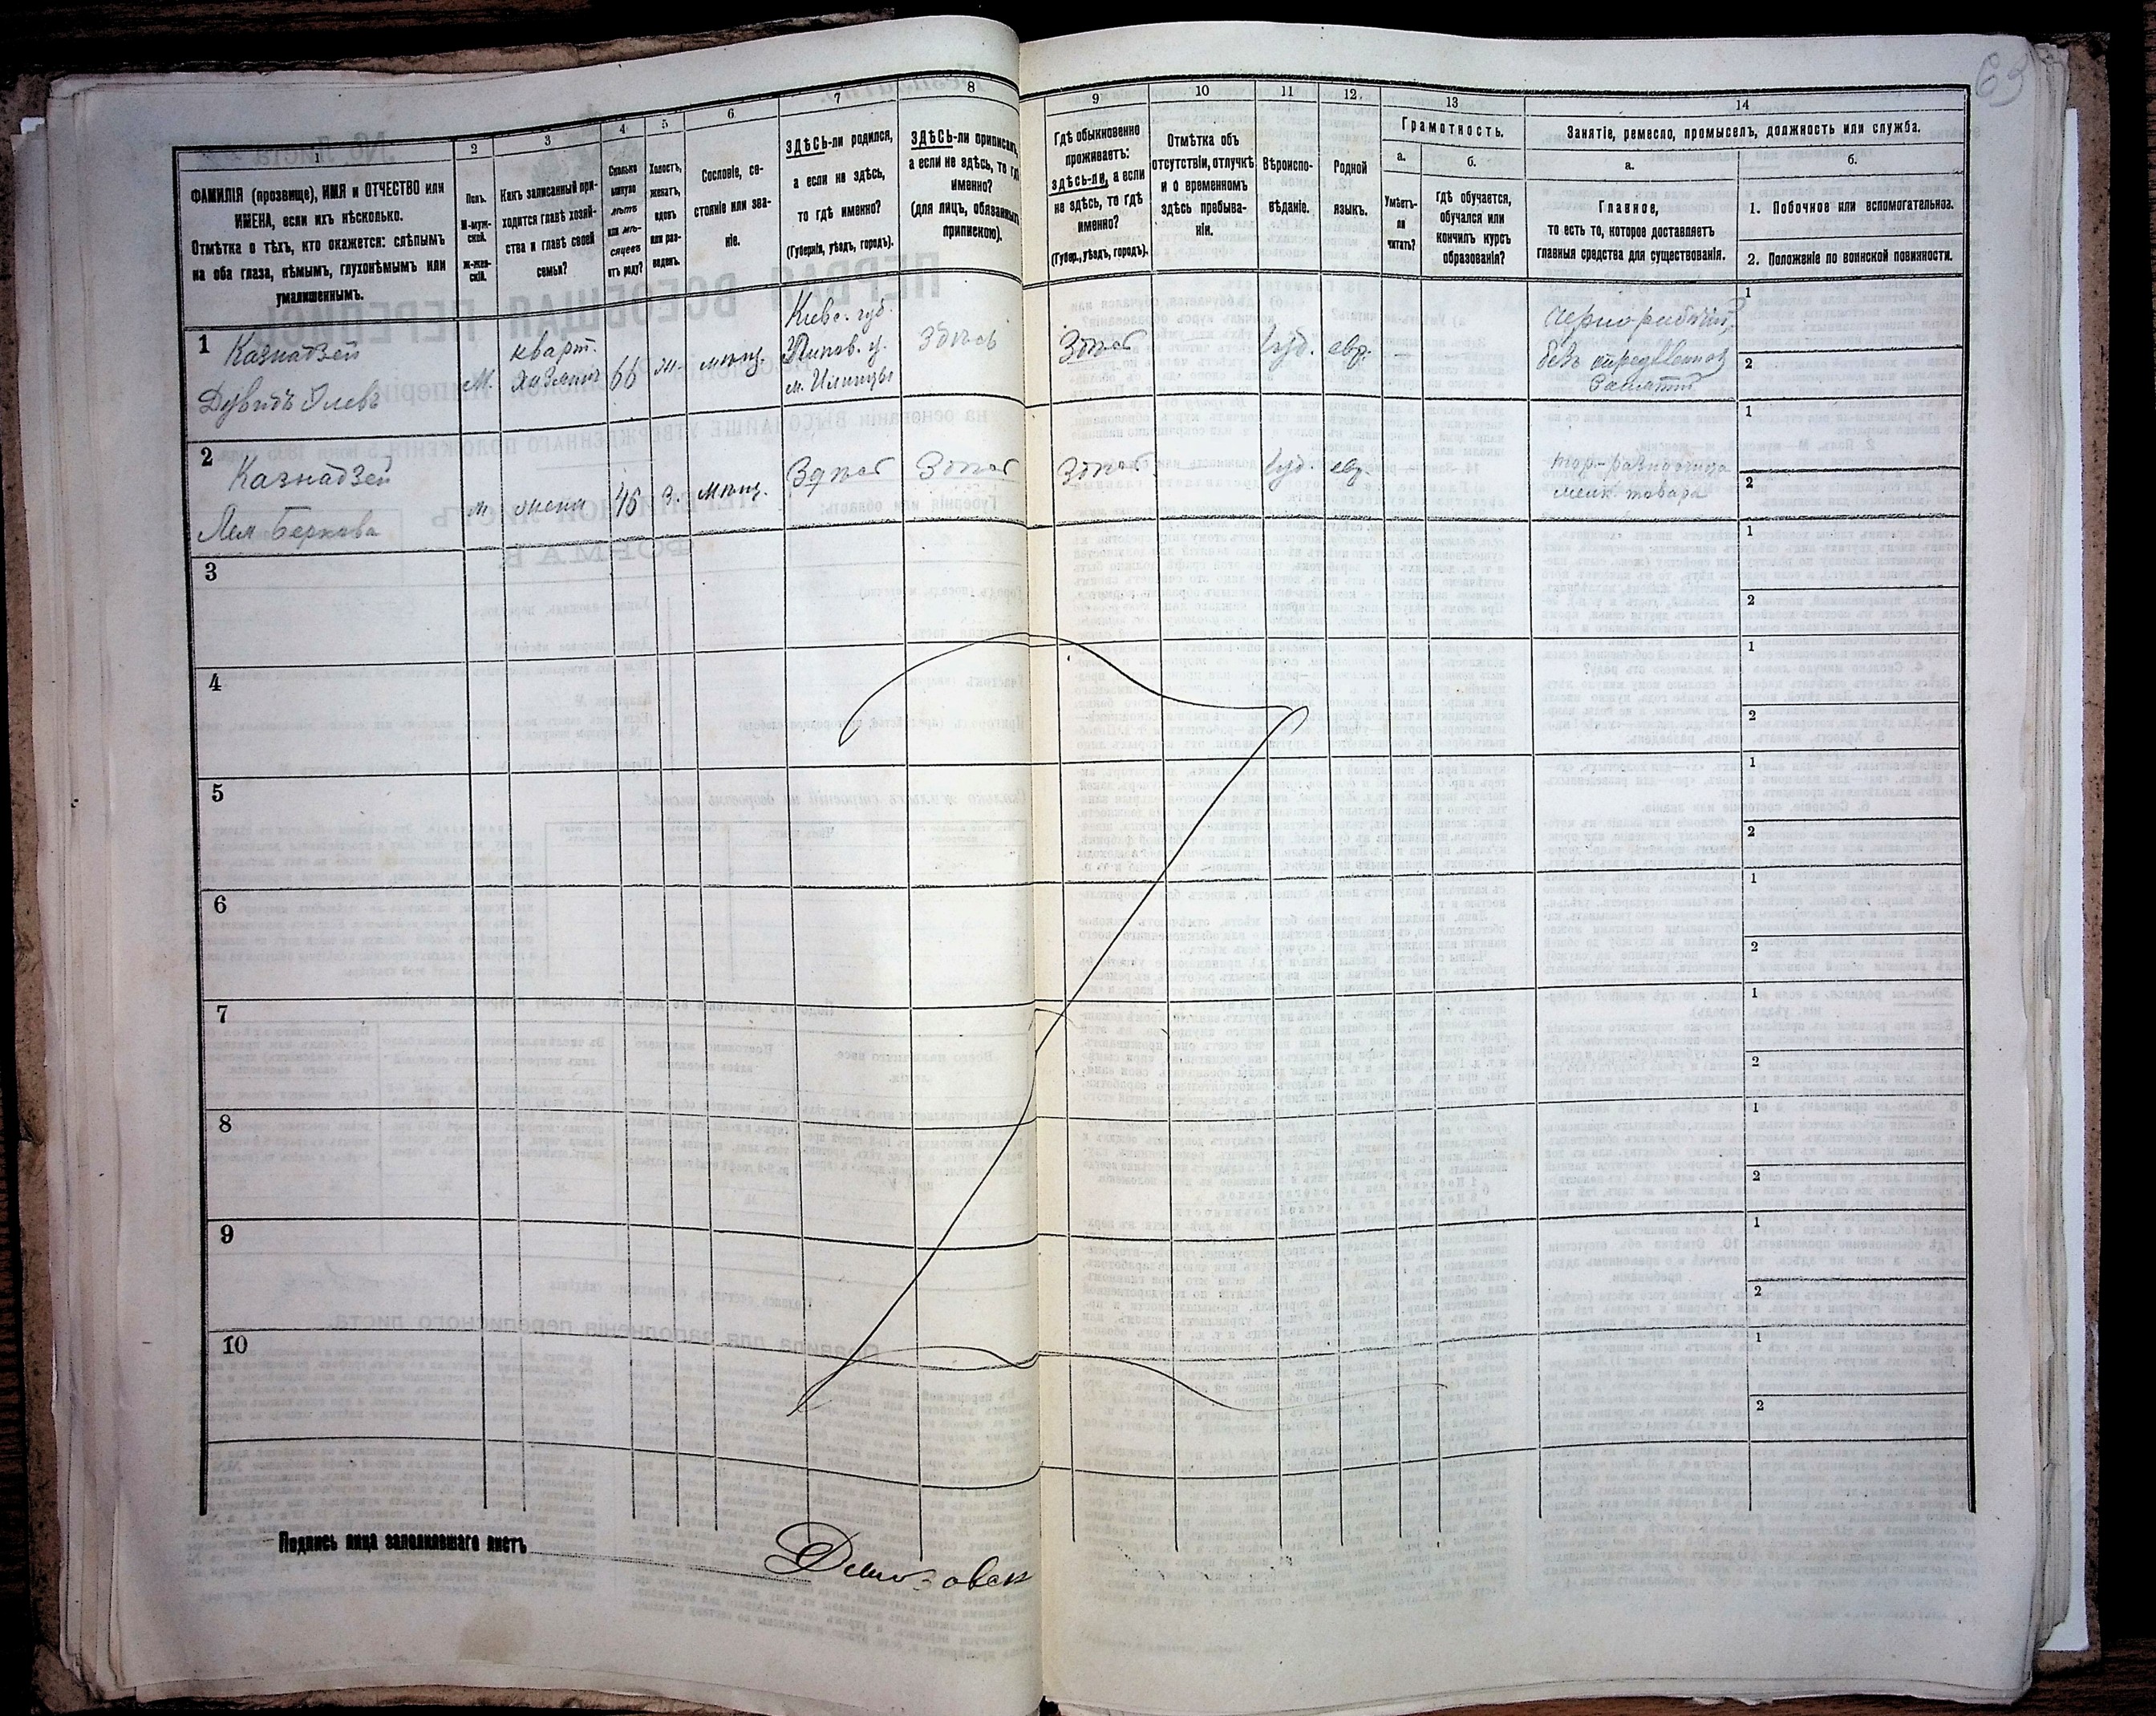 63
1
2
3
4
5
6
7
8
9
10
11
12.
13
14
ФАМИЛІЯ (прозвище), ИМЯ и ОТЧЕСТВО или
ИМЕНА, если ихъ нѣсколько.
Отмѣтка о тѣхъ, кто окажется: слѣпымъ
на оба глаза, нѣмымъ, глухонѣмымъ или
умалишеннымъ.
Полъ.
М-муж-
ской.
Ж-жен-
скій.
Какъ записанный при-
ходится главѣ хозяй-
ства и главѣ своей
семьи?
Сколько
минуло
лѣтъ
или мѣ-
сяцевъ
отъ роду?
Холостъ,
женатъ,
вдовъ
или раз-
веденъ.
Сословіе, со-
стояніе или зва-
ніе.
ЗДѢСЬ-ли родился,
а если не здѣсь,
то гдѣ именно?
(Губернія, уѣздъ, городъ).
ЗДѢСЬ-ли приписанъ,
а если не здѣсь, то гдѣ
именно?
(для лицъ, обязанныхъ
припискою).
Гдѣ обыкновенно
проживаетъ:
здѣсь-ли, а если
не здѣсь, то гдѣ
именно?
(Губер., уѣздъ, городъ).
Отмѣтка объ
отсутствіи, отлучкѣ
и о временномъ
здѣсь пребыва-
ніи.
Вѣроиспо-
вѣданіе.
Родной
языкъ.
Грамотность.
а.
Умѣетъ-
ли
читать?
б.
Гдѣ обучается,
обучался или
кончилъ курсъ
образованія?
Занятіе, ремесло, промыселъ, должность или служба.
а.
Главное,
то есть то, которое доставляетъ
главныя средства для существованія.
б.
1. Побочное или вспомогательное.
2. Положеніе по воинской повинности.
1
Казнадзей
Дувидъ
М.
кварт.
хозяинъ
66
ж.
мѣщ.
Кіевс. губ.
Липов. у.
м. Илинцы
Здѣсь
Здѣсь
іуд.
евр.
—
Чернорабочій,
безъ
занятій
1
2
2
Казнадзей
Лея Беркова
ж
жена
з.
мѣщ.
Здѣсь
Здѣсь
Здѣсь
іуд.
евр.
мелк. товара
1
2
3
1
2
4
1
2
5
1
2
6
1
2
7
1
2
8
1
2
9
1
2
10
1
2
Подпись лица заполнившаго листъ